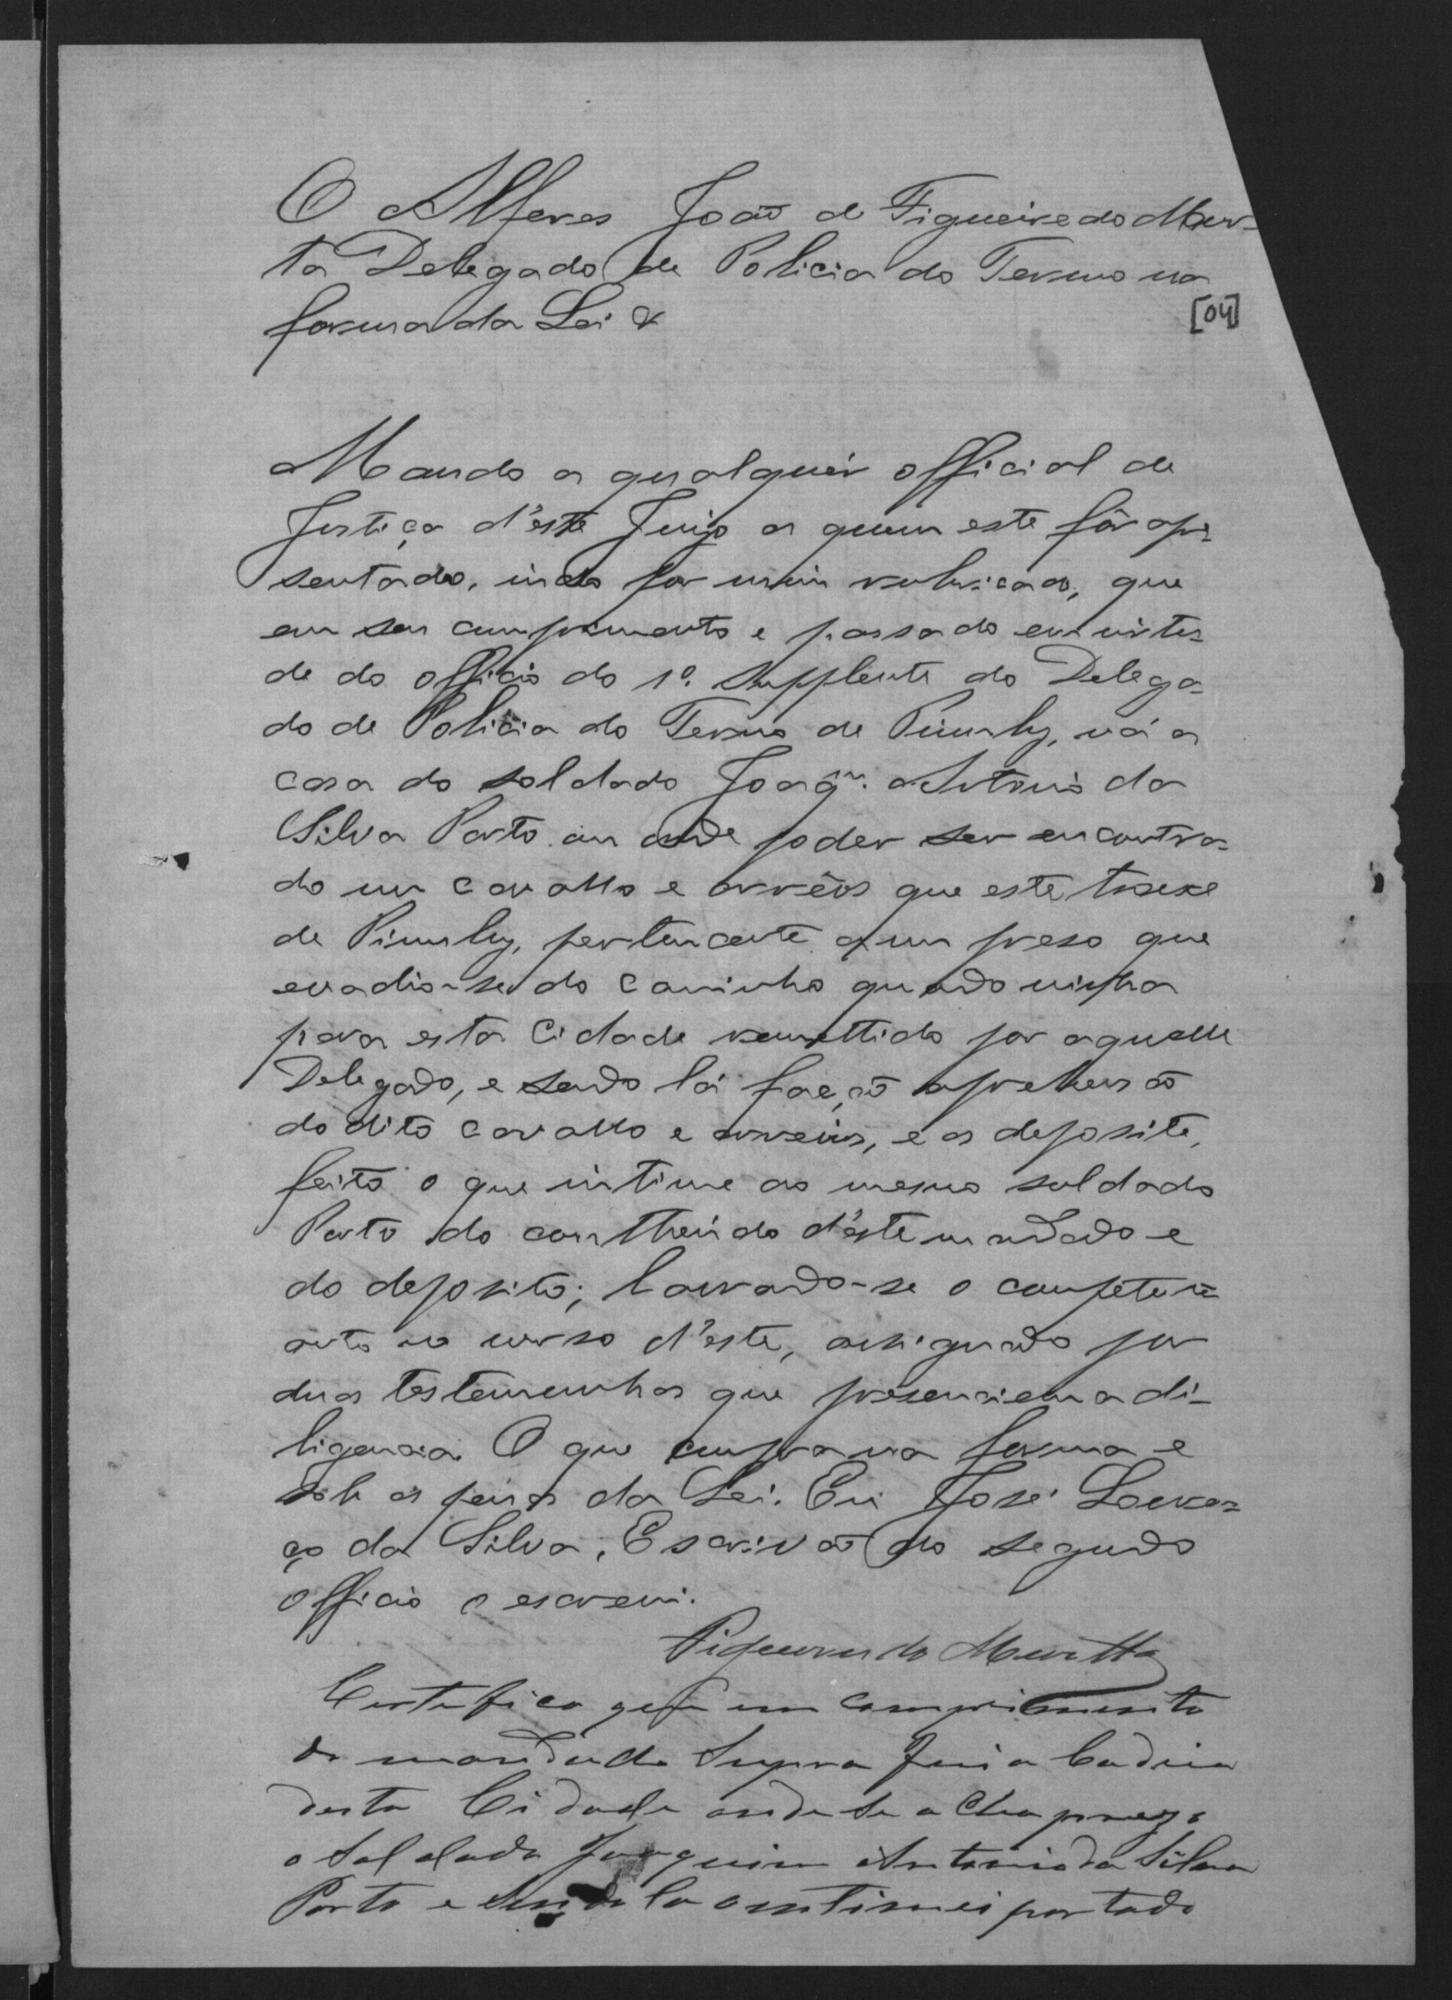 O Alferes João de Figueiredo Mur-
ta Delegado de Policia do Termo na
forma da Lei &
[04]
Mando a qualquér official de
Justiça d'este Juizo a quem este fôr apre-
sentado, indo por mim rubricado, que
em seu cumprimento e passado em virtu-
de do officio do 1º. Supplente do Delega-
do de Policia do Termo de Piumhy, vá a
casa do soldado Joaqm. Antonio da
Silva Porto ou onde poder ser encontra-
do um cavallo e arrêios que este trouxe
de Piumhy, pertencente a um preso que
evadio-se do caminho quando vinha
para esta Cidade remettido por aquelle
Delegado, e sendo lá faça aprehensão
do dito cavallo e arreios, e os deposite,
feito o que intime ao mesmo soldado
Porto do contheúdo d'este mandado e
do deposito; lavrando-se o competente
auto no verso d'este, assignado por
duas testemunhas que presenciem a di-
ligencia. O que cumpra na forma e
sob as penas da Lei. Eu José Louren-
ço da Silva, Escrivão do segundo
officio o escrevi.
Figueiredo Murtta
Certifico que em comprimento
do mandado Supra fui a Cadeia
desta Cidade onde se acha prezo
o Soldado Joaquim Antonio da Silva
Porto e sendo la o intimei por todo